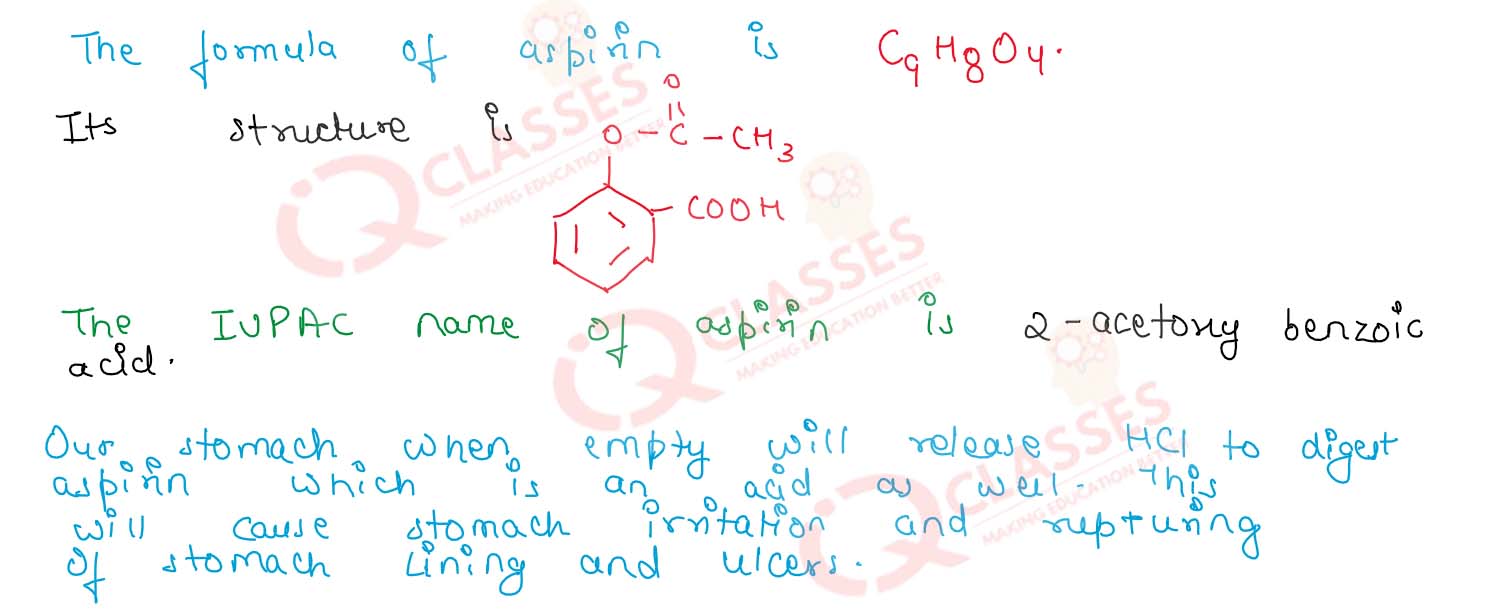 The formula of aspirin is C9H8O4.
O
||
Its structure is O-C-CH3
COOH
The IUPAC name of aspirin is 2-acetoxy benzoic
acid.
Our stomach when empty will release HCl to digest
aspirin which is an acid as well. This
will cause stomach irritation and rupturing
of stomach lining and ulcers.
CLASSES
MAKING EDUCATION BETTER
CLASSES
MAKING EDUCATION BETTER
CLASSES
MAKING EDUCATION BETTER